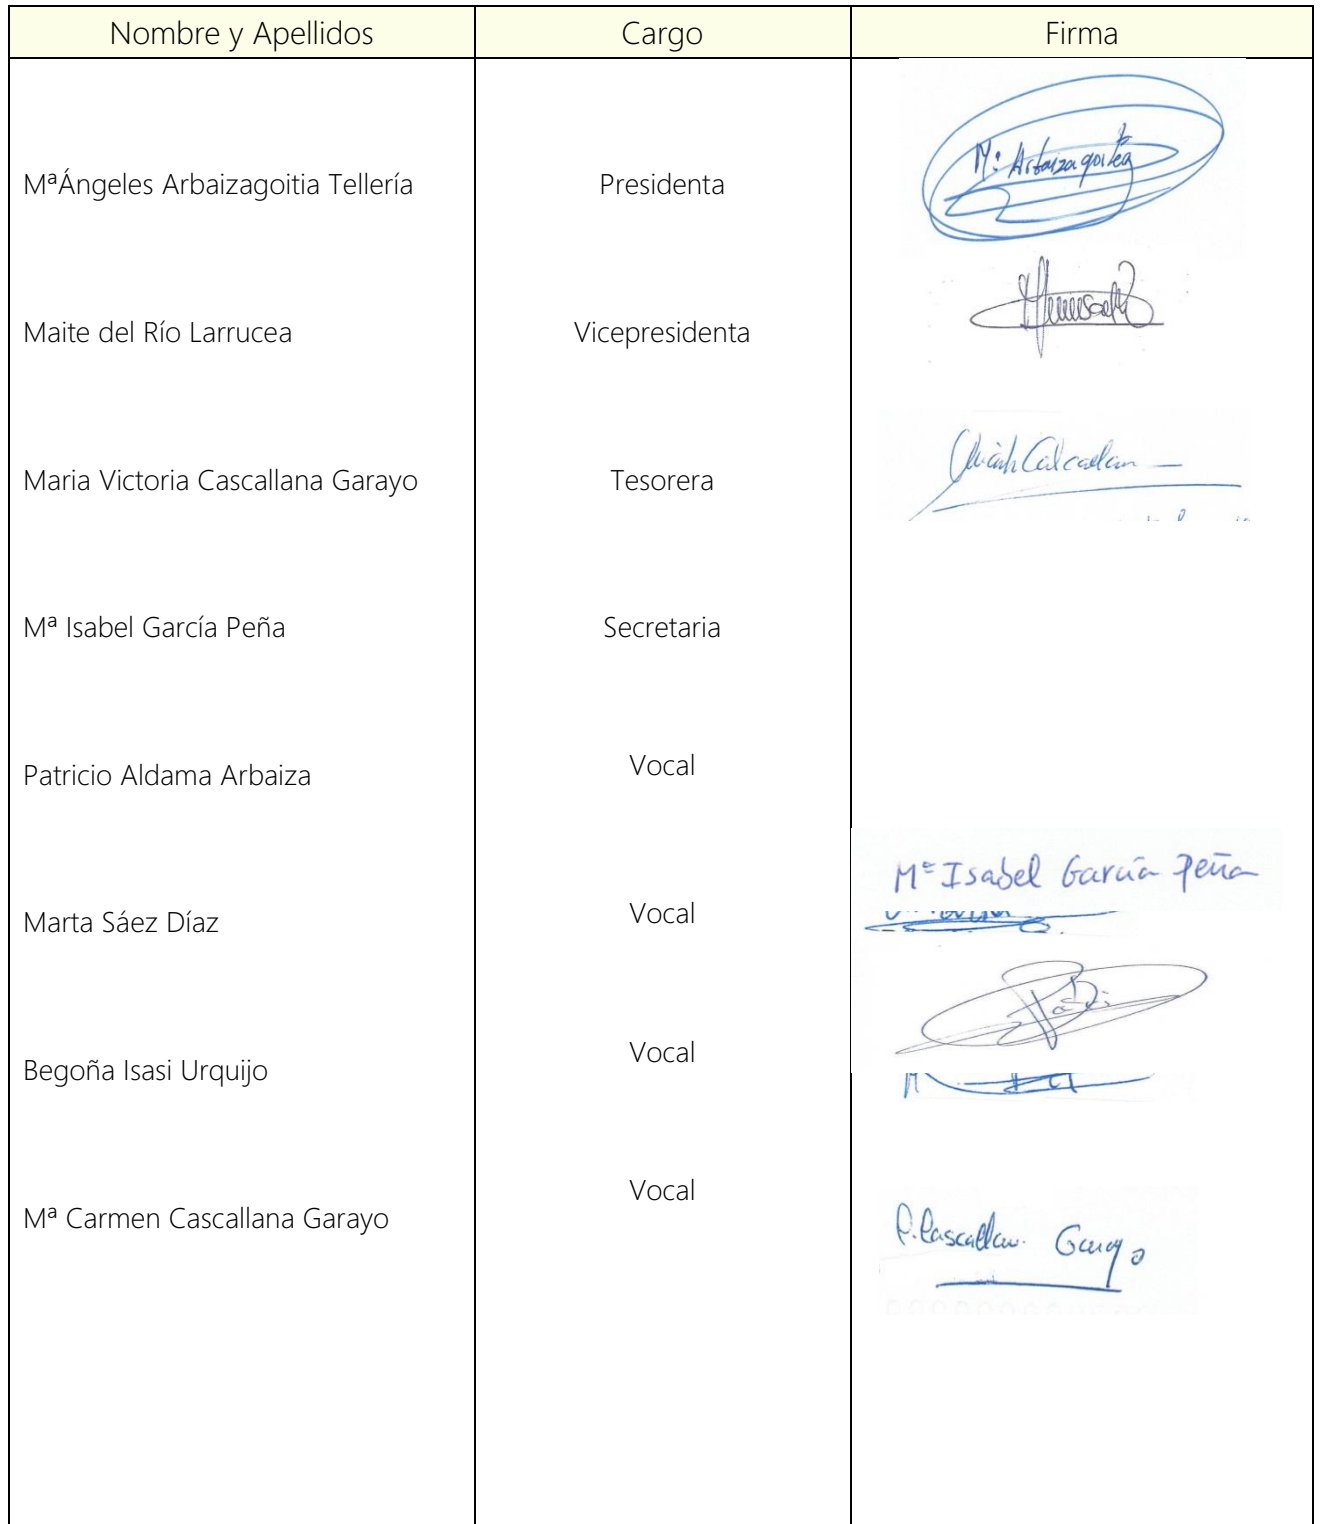 Nombre y Apellidos Cargo Firma
MªÁngeles Arbaizagoitia Tellería Presidenta Mª Arbaizagoitia
Maite del Río Larrucea Vicepresidenta
Maria Victoria Cascallana Garayo Tesorera
Mª Isabel García Peña Secretaria
Patricio Aldama Arbaiza Vocal
Mª Isabel García Peña
Marta Sáez Díaz Vocal
Begoña Isasi Urquijo Vocal
Mª Carmen Cascallana Garayo Vocal